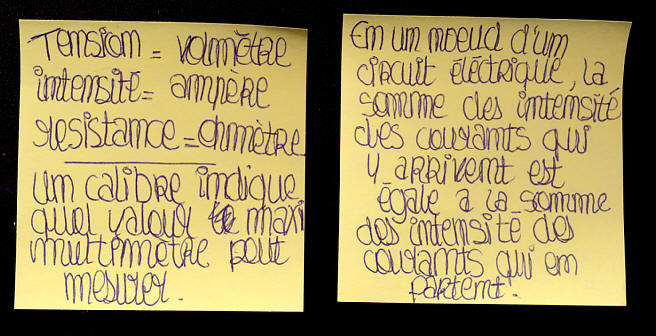 Tension = volmètre
intensité = ampère
resistance = ohmètre
un calibre indique
quel valeur le maxi
multimètre peut
mesurer.
En un noeud d'un
circuit éléctrique, la
somme des intensité
des courants qui
y arrivent est
égale a la somme
des intensité des
courants qui en
partent.